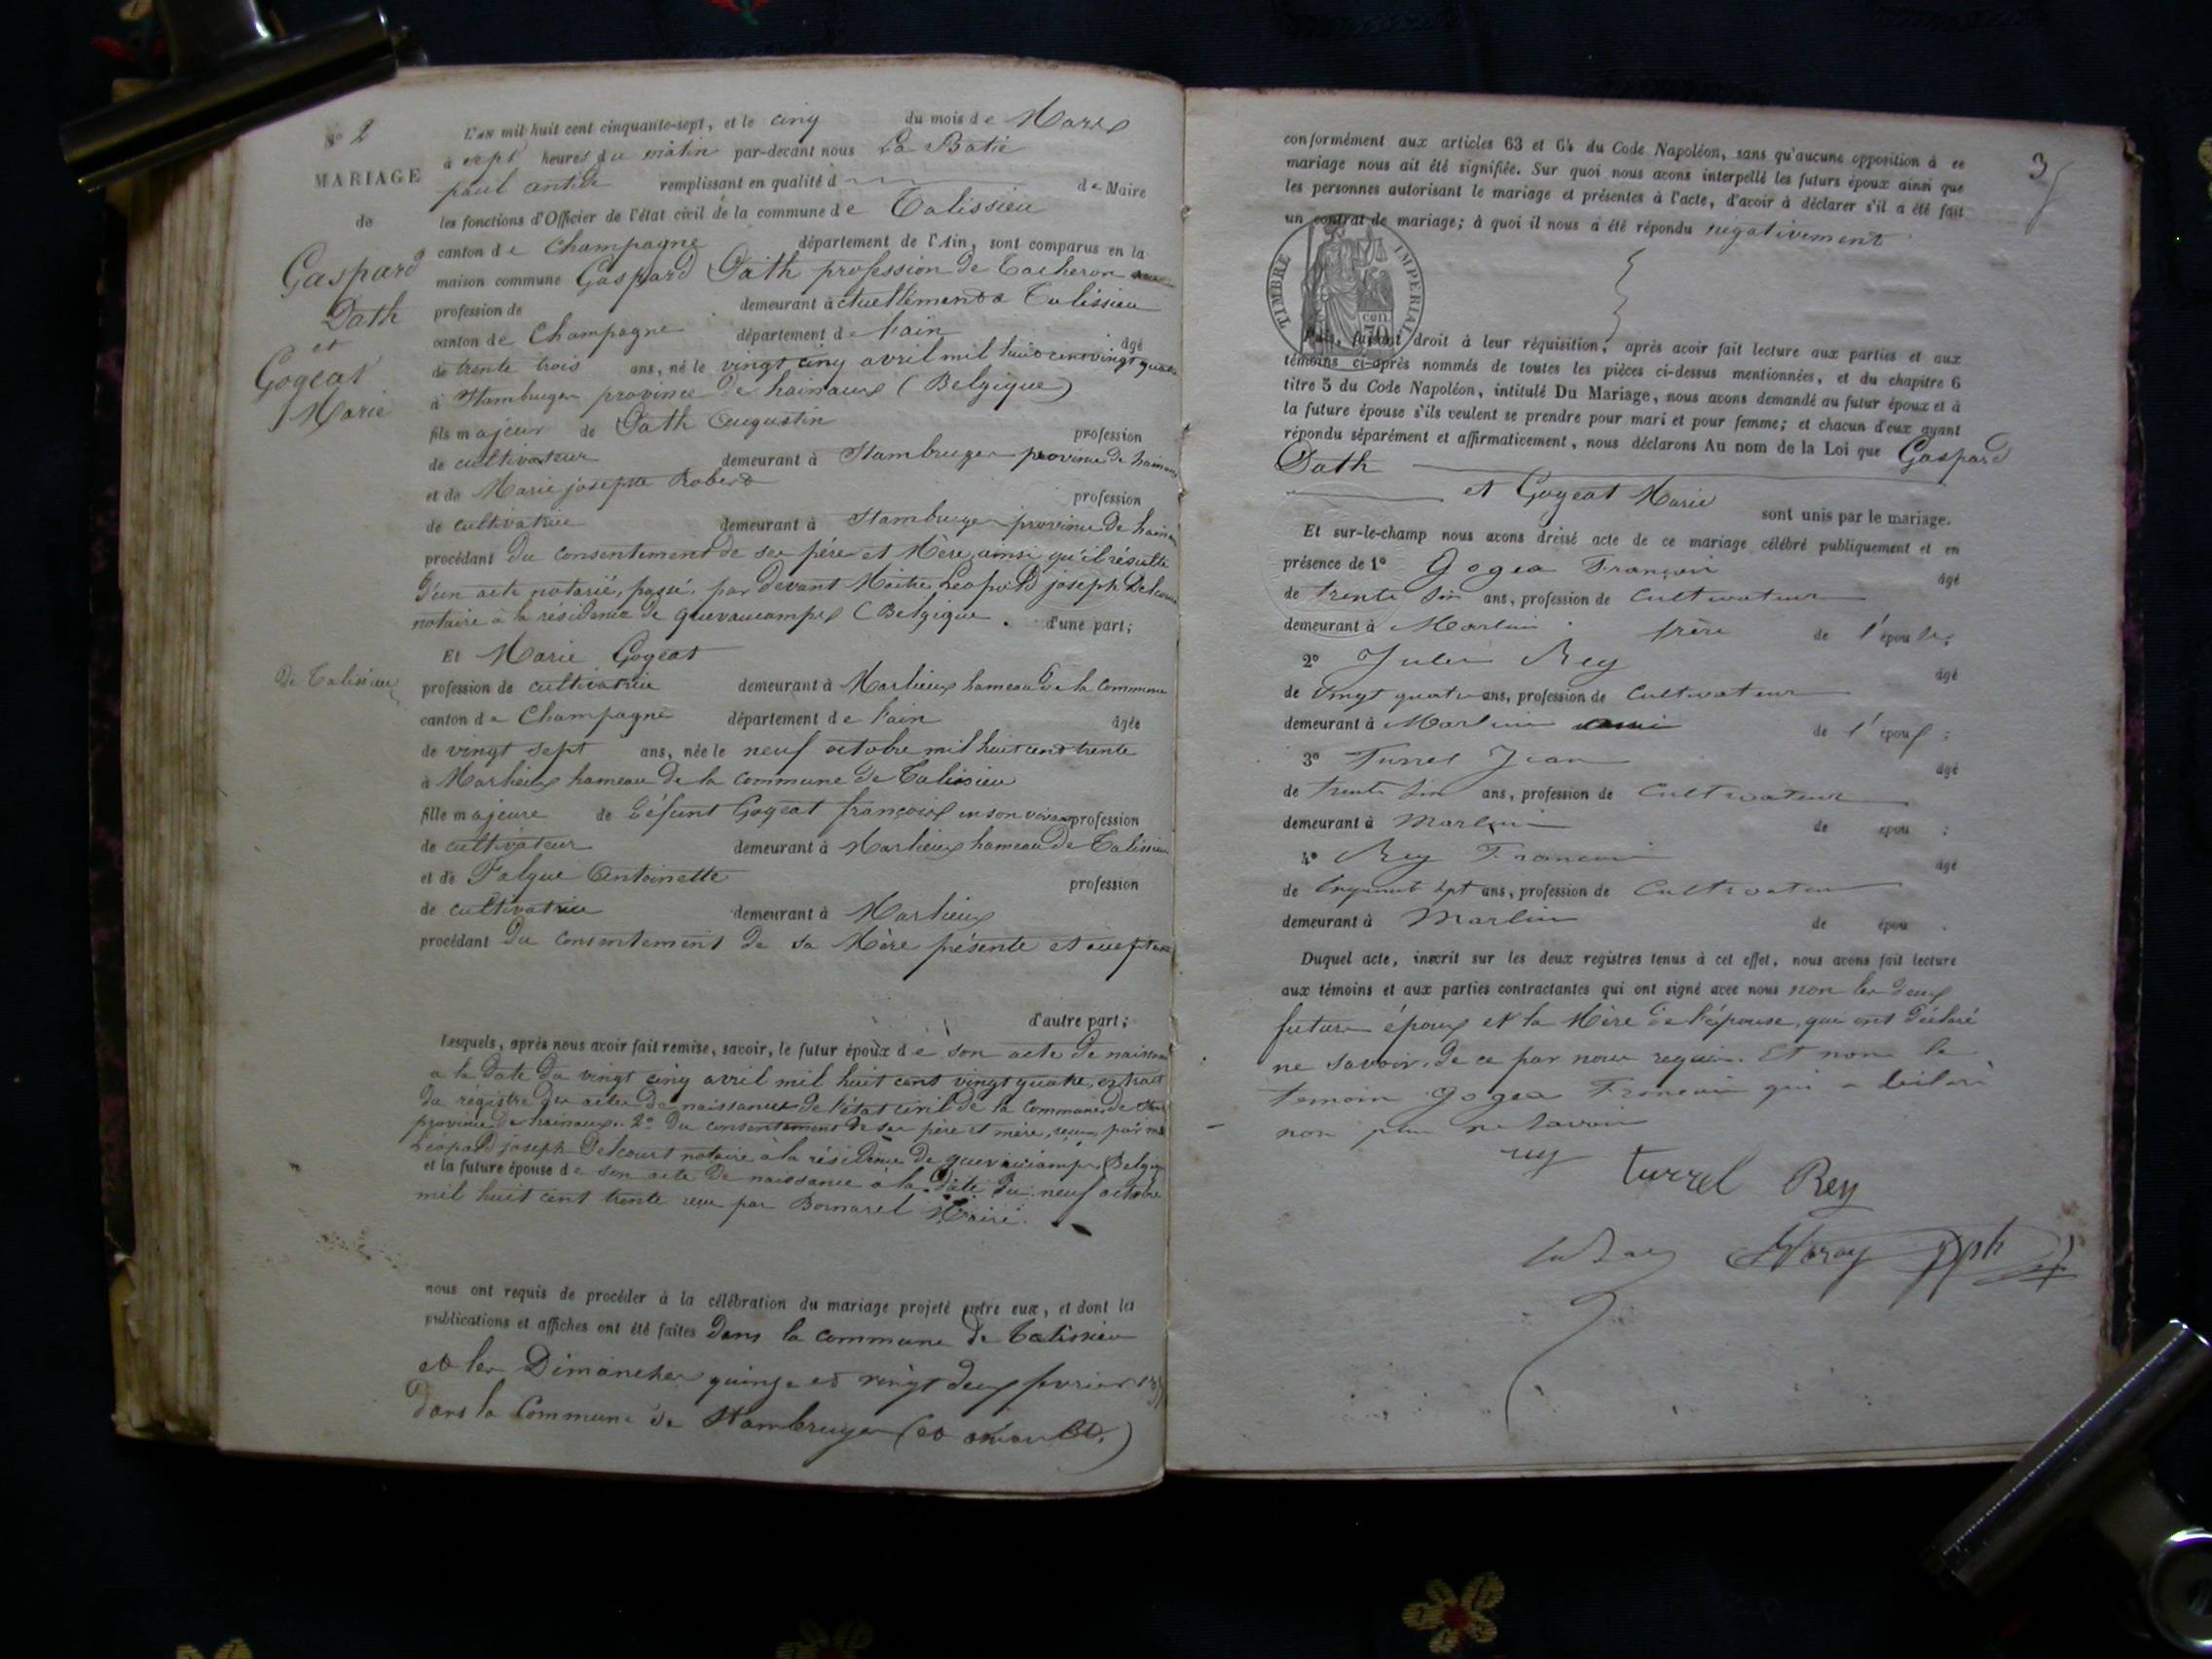 N° 2
MARIAGE
de
Gaspard
Dath
et
Gogeat
Marie
L'an mil huit cent cinquante-sept, et le cinq du mois de Mars
à sept heures du matin par-devant nous La Batie
paul remplissant en qualité d de Maire
les fonctions d'Officier de l'état civil de la commune de Talissieu
canton de Champagne département de l'Ain, sont comparus en la
maison commune Gaspard Dath profession de Tacheron
profession de demeurant actuellement à Talissieu
canton de Champagne département de l'ain âgé
de trente trois ans, né le vingt cinq avril mil huit cent vingt quatre
à Stambruges province de hainaux (Belgique)
fils majeur de Dath Augustin profession
de cultivateur demeurant à Stambruges province de hainaux
et de Marie josephe Robert profession
de cultivatrice demeurant à Stambruges province de hainaux
procédant du consentement de ses père et Mère, ainsi qu'il résulte
d'un acte notarié, passé par devant Maître Léopold joseph Delcourt
notaire à la résidence de quevaucamps (Belgique. d'une part;
Et Marie Gogeat
De Talissieu
profession de cultivatrice demeurant à Marlieux hameau de la Commune
canton de Champagne département de l'ain âgée
de vingt sept ans, née le neuf octobre mil huit cent trente
à Marlieux hameau de la commune de Talissieu
fille majeure de défunt Gogeat françois en son vivant profession
de cultivateur demeurant à Marlieux hameau de Talissieu
et de Falque Antoinette profession
de cultivatrice demeurant à Marlieux
procédant du consentement de sa Mère présente et acceptante
d'autre part;
Lesquels, après nous avoir fait remise, savoir, le futur époux de son acte de naissance
a la date du vingt cinq avril mil huit cent vingt quatre, extrait
du régistre des actes de naissances de l'état civil de la Commune de
province de hainaux. 2° du consentement de ses père et mère, reçu par
Léopold joseph Delcourt notaire à la résidence de quevaucamps (Belgique
et la future épouse de son acte de naissance a la date du neuf octobre
mil huit cent trente reçu par Bornarel Maire.
nous ont requis de procéder à la célébration du mariage projeté entre eux, et dont les
publications et affiches ont été faites dans la commune de Talissieu
et les Dimanches quinze et vingt deux fevrier
dans la Commune de Stambruges
3
conformément aux articles 63 et 64 du Code Napoléon, sans qu'aucune opposition à ce
mariage nous ait été signifiée. Sur quoi nous avons interpellé les futurs époux ainsi que
les personnes autorisant le mariage et présentes à l'acte, d'avoir à déclarer s'il a été fait
un contrat de mariage; à quoi il nous a été répondu négativement
TIMBRE IMPERIAL
cen 70
Puis, faisant droit à leur réquisition, après avoir fait lecture aux parties et aux
témoins ci-après nommés de toutes les pièces ci-dessus mentionnées, et du chapitre 6
titre 5 du Code Napoléon, intitulé Du Mariage, nous avons demandé au futur époux et à
la future épouse s'ils veulent se prendre pour mari et pour femme; et chacun d'eux ayant
répondu séparément et affirmativement, nous déclarons Au nom de la Loi que Gaspard
Dath
et Gogeat Marie sont unis par le mariage.
Et sur-le-champ nous avons dressé acte de ce mariage célébré publiquement et en
présence de 1° Gogea François âgé
de trente six ans, profession de Cultivateur
demeurant à Marlieu frère de l'épouse;
2° Jules Rey âgé
de vingt quatre ans, profession de Cultivateur
demeurant à Marlieu ami de l'époux;
3° Jean âgé
de trente six ans, profession de Cultivateur
demeurant à Marlieu de épou ;
4° Rey Francois âgé
de sept ans, profession de Cultivateur
demeurant à Marlieu de épou .
Duquel acte, inscrit sur les deux registres tenus à cet effet, nous avons fait lecture
aux témoins et aux parties contractantes qui ont signé avec nous non les deux
futurs époux et la Mère de l'épouse, qui ont déclaré
ne savoir, de ce par nous requis. Et non le
temoin Gogea Francois qui a déclaré
non plus ne savoir
rey turrel Rey